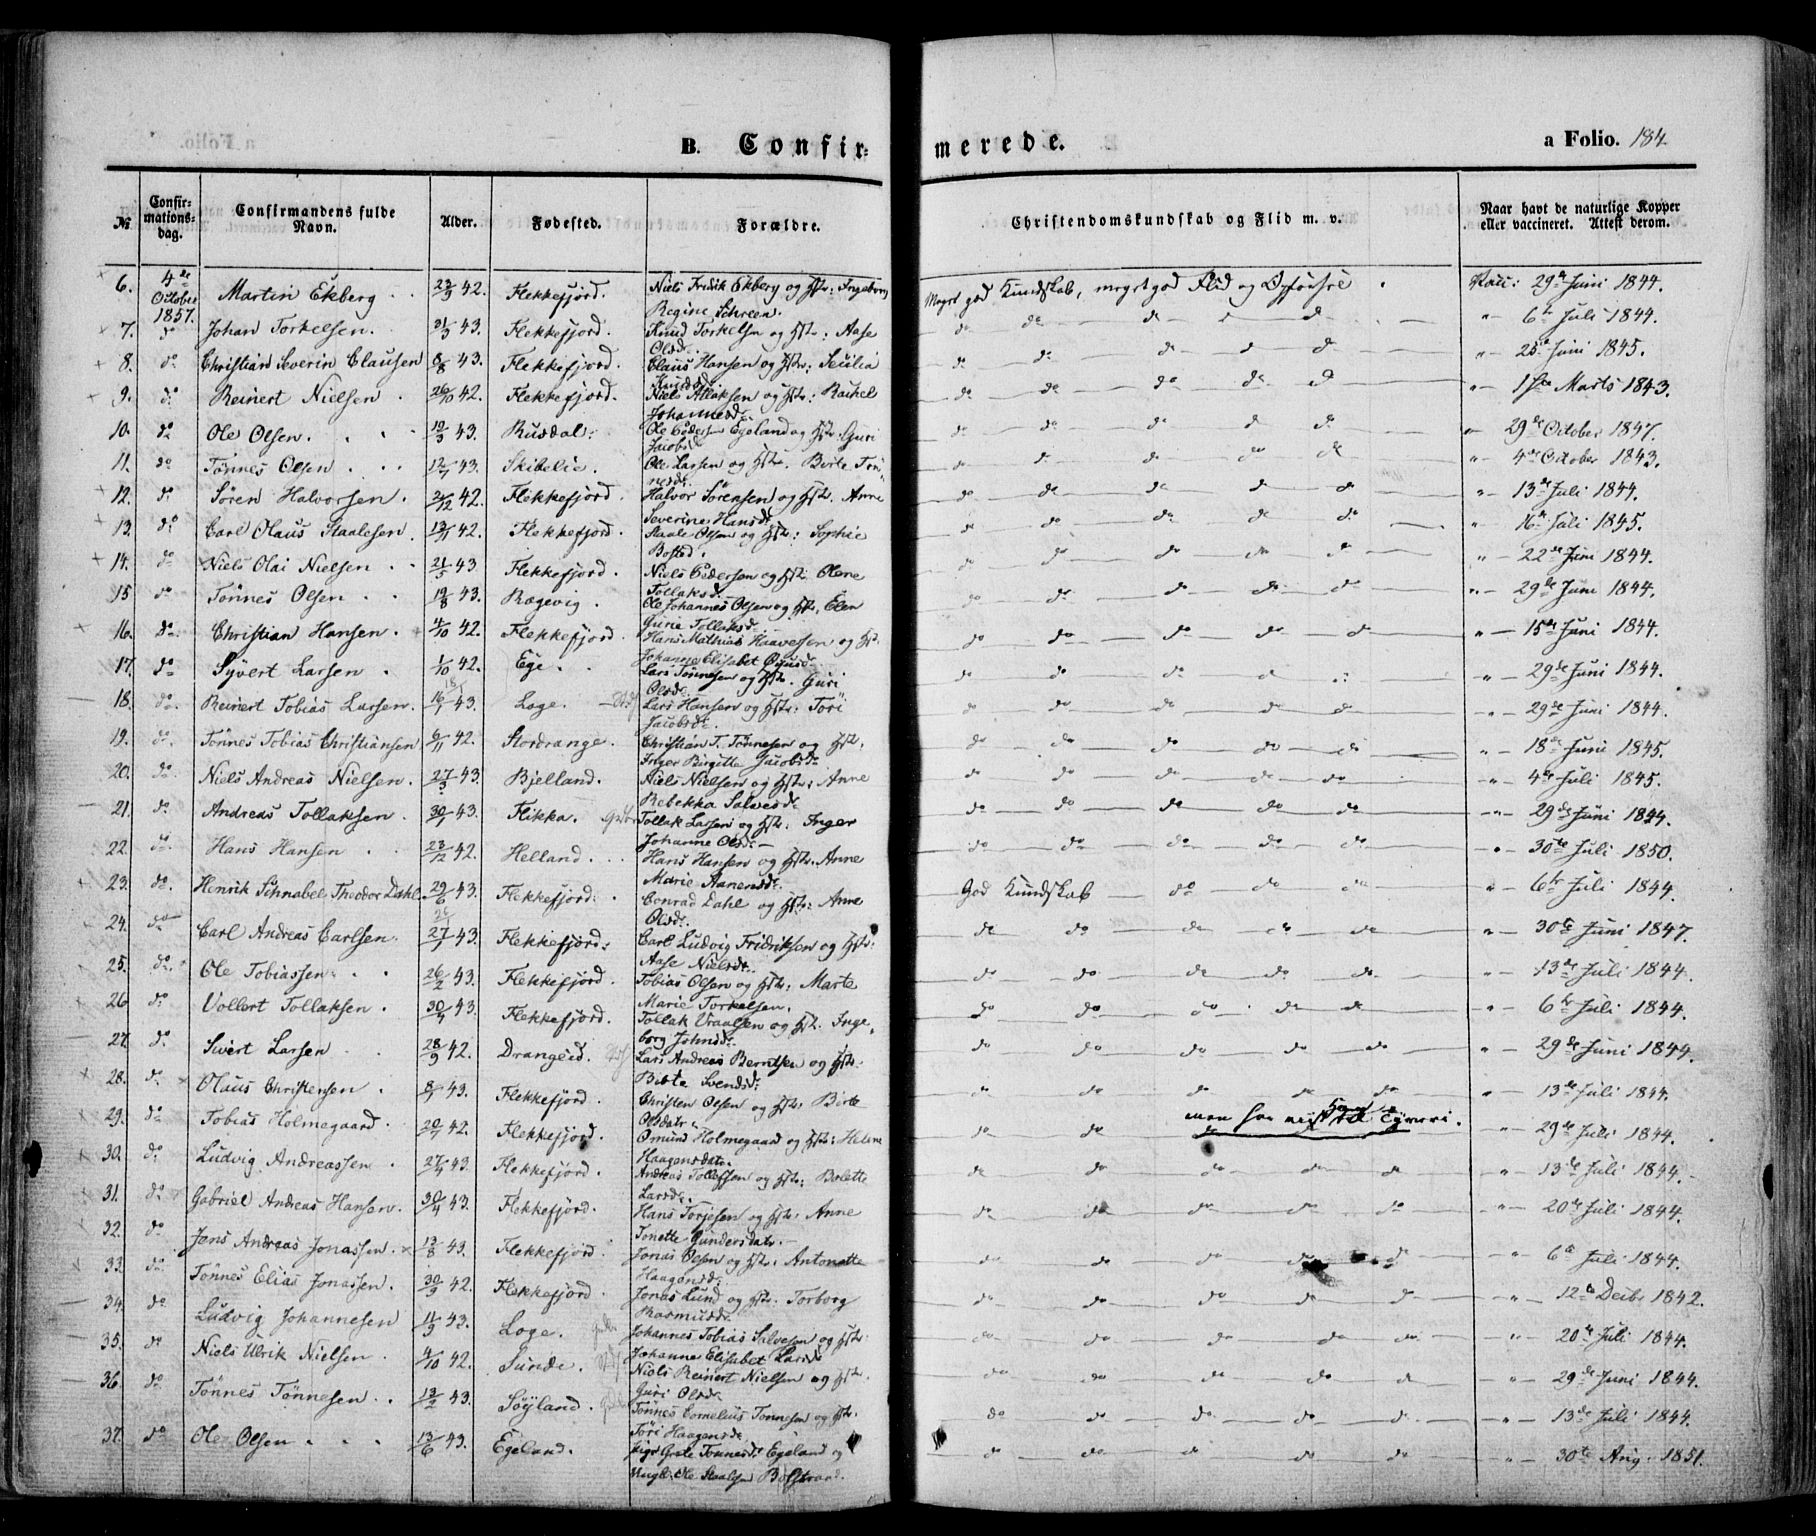 B. Confirmerede. a Folio. 184
No. Confirmations-dag. Confirmandens fulde Navn. Alder. Fødested. Forældre. Christendomskundskab og Flid m. v. Naar havt de naturlige Kopper eller vaccineret. Attest derom.
6. 4de October 1857. Martin Ekberg 23/9 42. Flekkefjord. Niels Fredik Ekberg og Hstr: Ingeborg Regine Schreen. Meget god Kundskab, meget god Flid og Opførsel 29de Juni 1844.
7. do Johan Torkelsen. 21/3 43. Flekkefjord. Knud Torkelsen og Hstr: Aase Olsdr. do do do do do " 6te Juli 1844.
8. do Christian Severin Clausen 8/8 43. Flekkefjord. Claus Hansen og Hstr: Secilia Knudsdr. do do do do do " 25de Juni 1845.
9. do Reinert Nielsen 26/10 42. Flekkefjord. Niels Atlaksen og Hstr: Rachel Johannesdr. do do do do do " 1ste Marts 1843.
10. do Ole Olsen. 19/3 43. Rusdal. Ole Pedersen Egeland og Hstr: Guri Jacobsdr. do do do do do " 29de October 1847.
11. do Tønnes Olsen 12/7 43. Skibelie. Ole Larsen og Hstr. Berte Tønnesdr. do do do do do " 4de October 1843.
12. do Søren Halvorsen. 21/12 42. Flekkefjord. Halvor Sørensen og Hstr. Anne Severine Hansdr. do do do do do " 13de Juli 1844.
13. do Carl Olaus Staalesen. 13/11 42. Flekkefjord. Staale Olsen og Hstr: Sophie Bøsted. do do do do do " 16de Juli 1845.
14. do Niels Olai Nielsen 21/5 43 Flekkefjord. Niels Pedersen og Hstr. Olene Tollaksd. do do do do " 22de Juni 1844.
15 do Tønnes Olsen 19/8 43. Rægevig. Ole Johannes Olsen og Hstr. Elen Gurie Tollaksd. do do do do do " 29de Juni 1844.
16. do Christian Hansen. 4/10 42. Flekkefjord. Hans Mathias Haavesen og Hstr. Johanne Elisabet do do do do do " 15de Juni 1844.
17. do Syvert Larsen 1/10 42. Ege. Lars Tønnesen og Hstr. Guri Olsdr. do do do do " 29de Juni 1844.
18. do Reinert Tobias Larsen. 16/1 43. Loge. Lars Hansen og Hstr: Tøri Jacobsdr. do do do do do " 29de Juni 1844.
19. do Tønnes Tobias Christiansen 6/11 42. Stordrange. Christian T. Tønnesen og Hstr. Inger Birgitte Jacobsdr do do do do do " 18de Juni 1845.
20. do Niels Andreas Nielsen. 27/3 43. Bjelland. Niels Nielsen og Hstr: Anne Rebekka Salvesdr do do do do do " 4de Juli 1845.
21. do Andreas Tollaksen. 30/1 43. Flikka. Tollak Larsen og Hstr. Inger Johanne Olsdr. do do do do do " 29de Juni 1844.
22. do Hans Hansen 23/12 42. Helland. Hans Hansen og Hstr. Anne Marie Aanensdr. do do do do do " 30te Juli 1850.
23. do Henrik Schnabel Theodor Dahl 29/6 43. Flekkefjord. Conrad Dahl og Hstr: Anne Olsdr. God Kundskab do do do " 6te Juli 1844.
24. do Carl Andreas Carlsen. 27/1 43. Flekkefjord. Carl Ludvig Fridriksen og Hstr: Aase Nielsdr. do do do do do " 30te Juni 1847.
25. do Ole Tobiassen 26/2 43. Flekkefjord. Tobias Olsen og Hstr: Marte Marie Torkelsen. do do do do do " 13de Juli 1844.
26 do Vollert Tollaksen 30/4 43. Flekkefjord. Tollak Vraalsen og Hstr. Ingeborg Johnsdr. do do do do do " 6te Juli 1844.
27. do Sivert Larsen 28/9 42. Drangeid. Lars Andreas Berntsen og Hstr. Birte Svendsdr: do do do do do " 29de Juni 1844.
28. do Olaus Christensen 8/1 43. Flekkefjord. Christen Olsen og Hstr: Birte Olsdatr. do do do do " 13de Juli 1844.
29. do Tobias Holmegaard. 20/7 42. Flekkefjord. Omund Holmegaard og Hstr: Helene Haagensdatr. do do men har " 29de Juli 1844.
30. do Ludvig Andreassen 27/4 43. Flekkefjord. Andreas Tollefsen og Hstr: Bolette Larsdr. do do do do do " 13de Juli 1844.
31. do Gabriel Andreas Hansen. 30/4 43. Flekkefjord. Hans Torjesen og Hstr: Anne Tonette Gundersdatr. do do do do do " 20de Juli 1844.
32. do Jens Andreas Jonassen. 13/8 43. Flekkefjord. Jonas Olsen og Hstr: Antonette Haagensdr. do do do do do " 6te Juli 1844.
33. do Tønnes Elias Jonassen. 30/9 42. Flekkefjord. Jonas Lund og Hstr. Torborg Rasmusdr. do do do do do " 12te Decbr 1842.
34. do Ludvig Johannesen 11/9 43. Loge. Johannes Tobias Salvesen og Hstr: Johanne Elisabet Larsdr do do do do do " 20de Juli 1844.
35. do Niels Ulrik Nielsen 4/10 42. Sunde. Niels Reinert Nielsen og Hstr. Guri Olsdr. do do do do do " 29de Juni 1844.
36. do Tønnes Tønnesen 13/2 43. Søyland. Tønnes Cornelius Tønnesen og Hstr. Tøri Haagensdr. do do do do do " 13de Juli 1844.
37. do Ole Olsen 13/6 43. Egeland. Pige Grete Tønnesdr Egeland og Ungk: Ole Staalesen Bøstrand. do do do do do " 30te Aug. 1851.